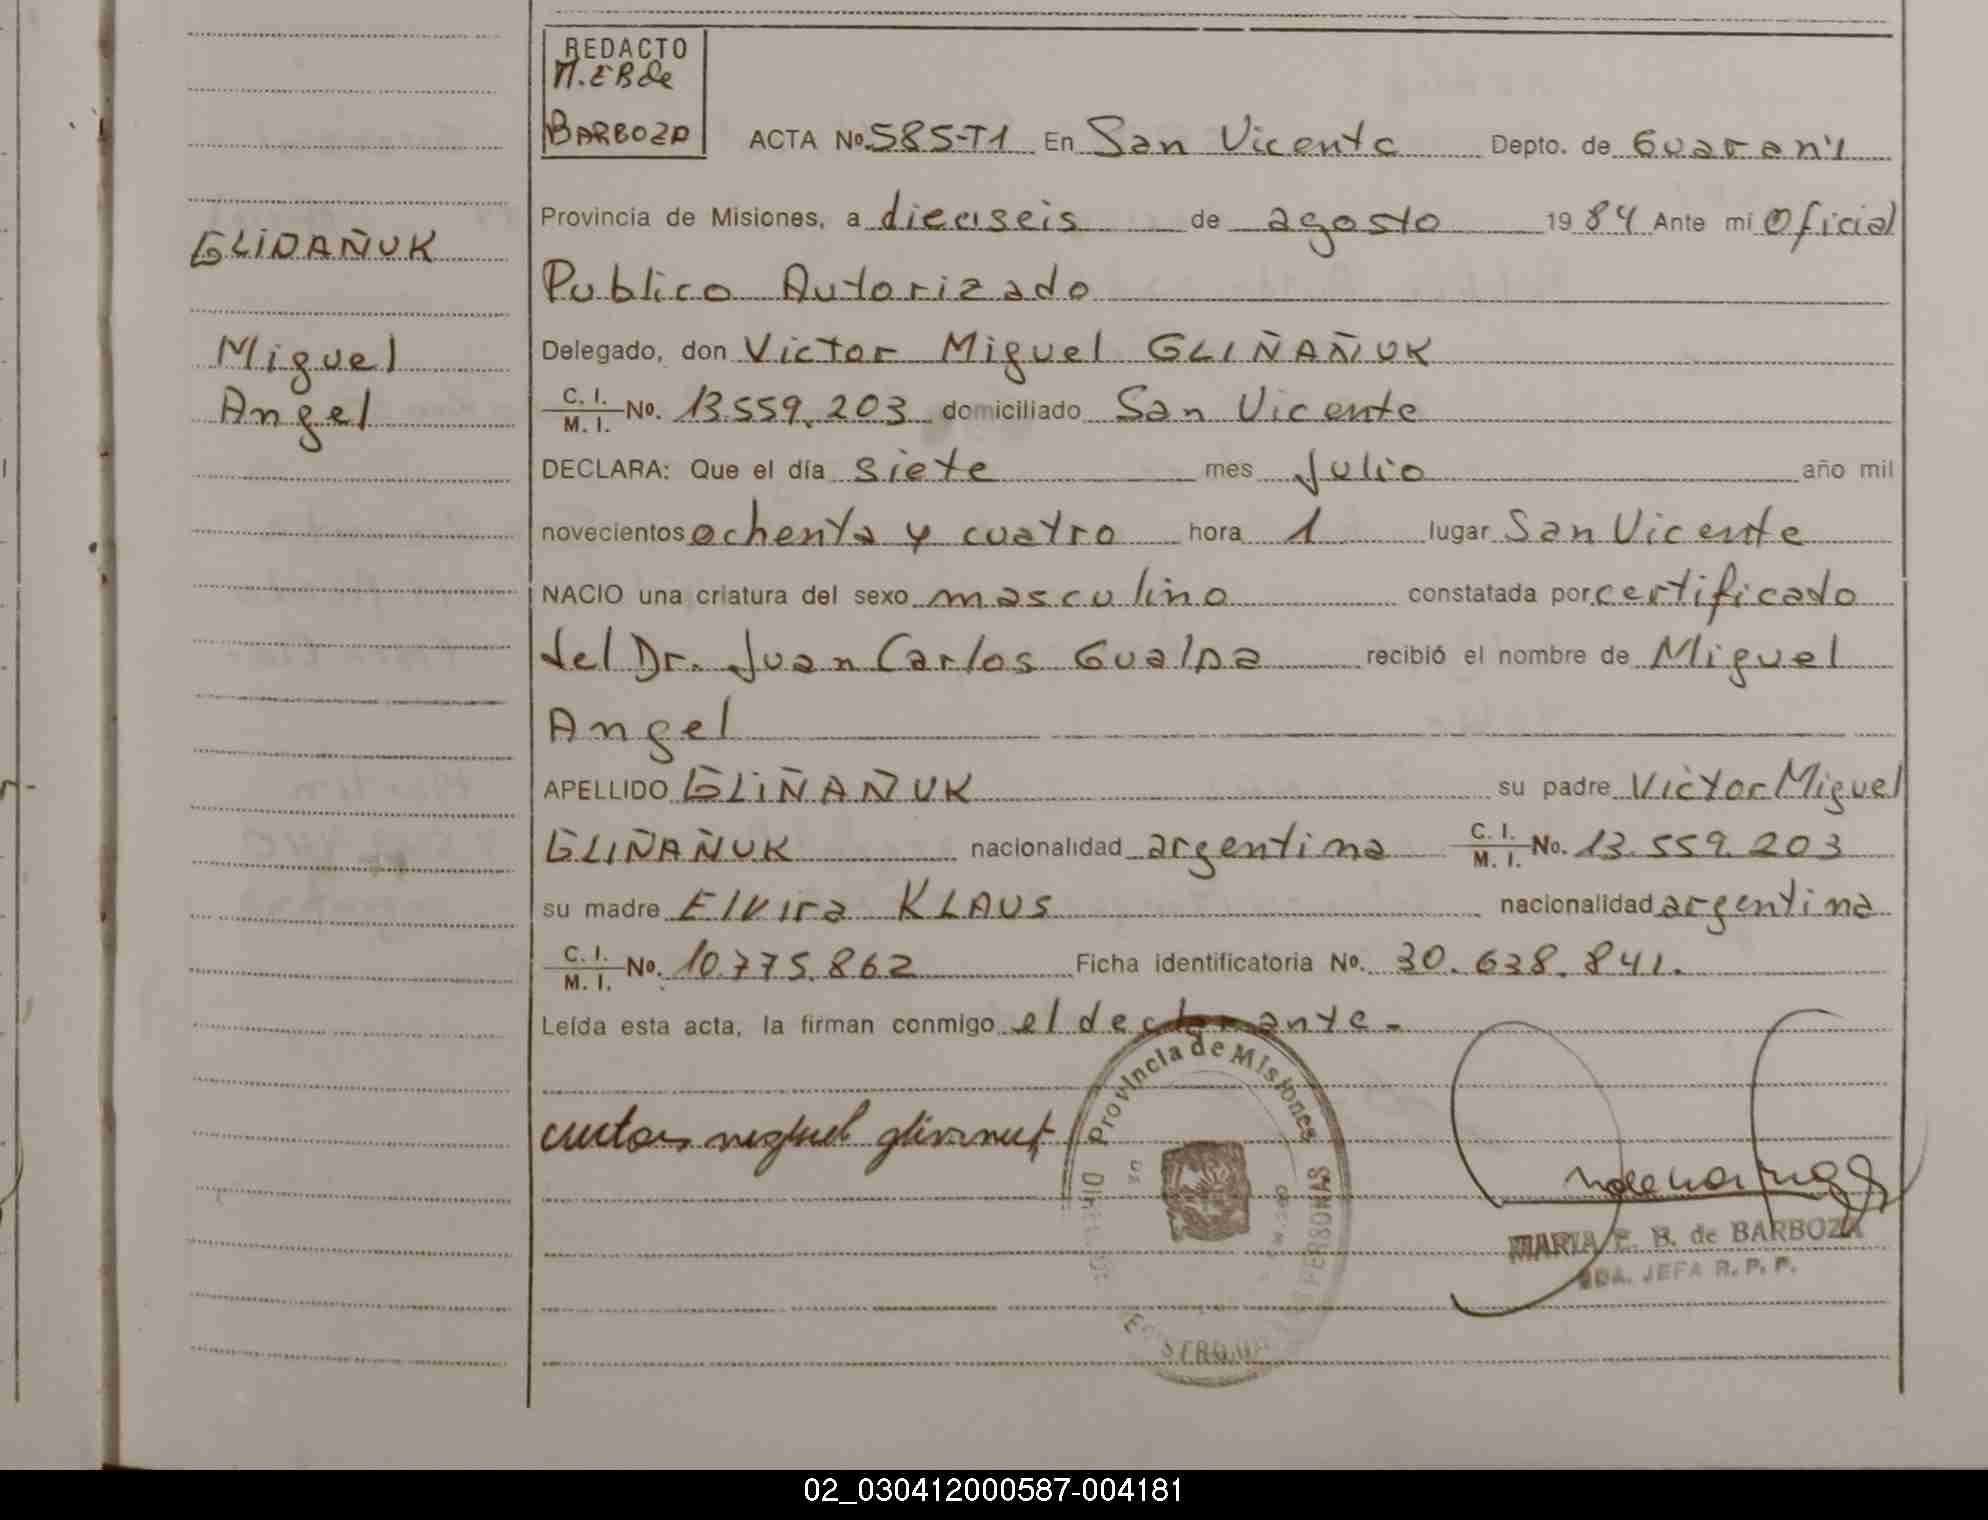 REDACTO
M.EBde
BARBOZA
ACTA No. 585-T1 En San Vicente Depto. de Guaraní
Provincia de Misiones, a dieciseis de agosto 1984 Ante mí Oficial
Publico Autorizado
Delegado, don Victor Miguel GLIÑAÑUK
C. I. / M. I. No. 13.559.203 domiciliado San Vicente
DECLARA: Que el día siete mes Julio año mil
novecientos ochenta y cuatro hora 1 lugar San Vicente
NACIO una criatura del sexo masculino constatada por certificado
del Dr. Juan Carlos Gualpa recibió el nombre de Miguel
Angel
APELLIDO GLIÑAÑUK su padre Victor Miguel
GLIÑAÑUK nacionalidad argentina C. I. / M. I. No. 13.559.203
su madre Elvira KLAUS nacionalidad argentina
C. I. / M. I. No. 10.775.862 Ficha identificatoria No. 30.638.841.
Leída esta acta, la firman conmigo el declarante.-
GLIÑAÑUK
Miguel
Angel
Provincia de Misiones
PERSONAS
MARIA E. B. de BARBOZA
JEFA R. P. P.
02_030412000587-004181